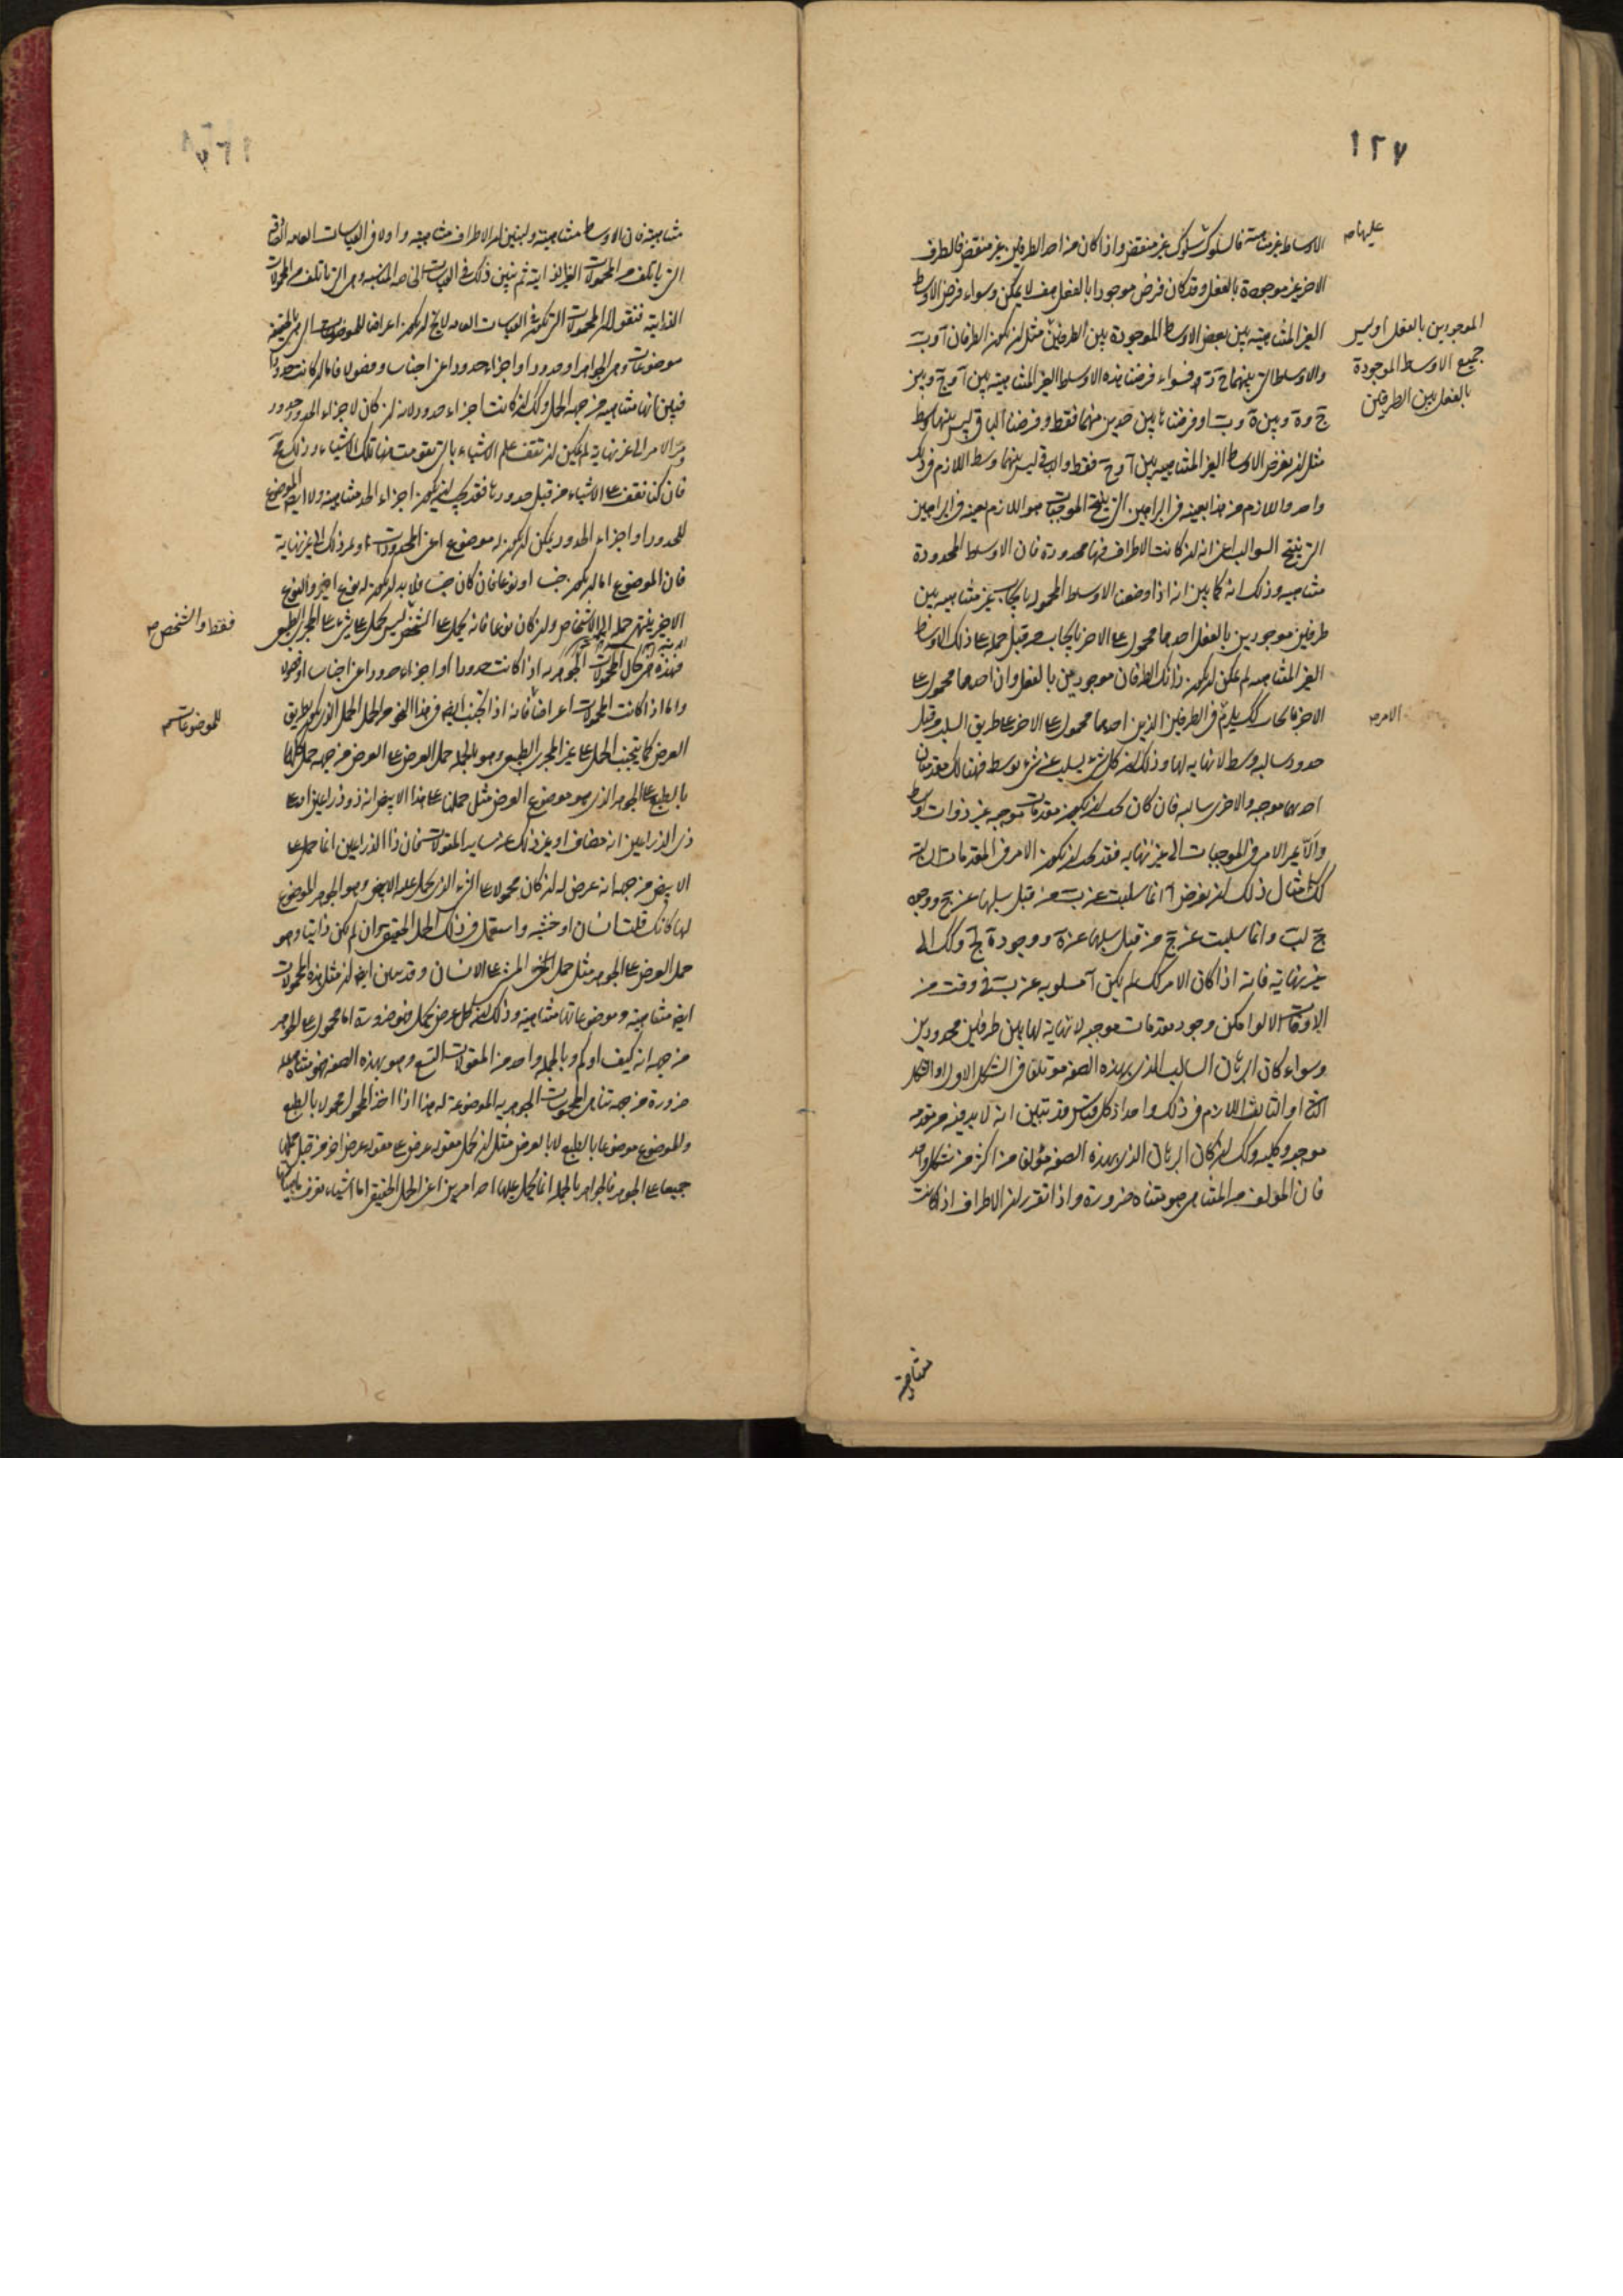 ١٢٧
الاوساط غير متناهية فالسلوك سلوك غير منقض واذا كان من احد الطرفين غير منقض فالطرف
عليها صح
الاخر غير موجودة بالفعل وقد كان فرض موجودا بالفعل هف لا يمكن وسواء فرض الاوساط
الغير المتناهية بين بعض الاوساط الموجودة بين الطرفين مثل ان يكون الطرفان آ و ب
الموجودين بالفعل او بين
جميع الاوسط الموجودة
بالفعل بين الطرفين
والاوساط التى بينهما ج د ه فسواء فرضنا هذه الاوساط الغير المتناهية بين آ و ج وبين
ج و ه وبين ه و ب او فرضناها بين حدين منهما فقط وفرضنا الباقى ليس بينهما وسط
مثل ان نفرض الاوساط الغير المتناهيه بين آ و ج فقط والباقى ليس بينهما وسط اللازم فى ذلك
واحد واللازم من هذا بعينه فى البراهين التى تنتج الموجبات هو اللازم بعينه فى البراهين
التى تنتج السوالب اعنى انه ان كانت الاطراف فيها محدودة فان الاوساط المحدودة
متناهيه وذلك انه كما بين انه اذا وضعنا الاوسط المحمول بايجاب غير متناهيه بين
طرفين موجودين بالفعل احدهما محمول على الاخر بايجاب من قبل حمله على ذلك الاوساط
الغير المتناهيه لم يمكن ان يكون ذانك الطرفان موجودين بالفعل وان احدهما محمول على
الاخر بايجاب كك يلزم فى الطرفين الذين احدهما محمول على الاخر على طريق السلب من قبل
الامر صح
حدود سالبه وسط لا نهايه لها وذلك ان كل شىء يسلب عن شىء بوسط فهنالك مقدمتان
احدهما موجبه والاخرى سالبه فان كان يجب ان يكون مقدمات موجبه غير ذوات وسط
والا يمر الامر فى الموجبات الى غير نهايه فقد يجب ان يكون الامر فى المقدمات السالبة
كك مثال ذلك ان نفرض آ انما سلبت عن ب من قبل سلبها عن ج ووجود
ج لب وانما سلبت عن ج من قبل سلبها عن ه ووجود ه لج وكك الى
غير نهاية فانه اذا كان الامر كك لم يكن آ مسلوبه عن ب فى وقت من
الاوقات الا لو امكن وجود مقدمات موجبه لا نهاية لها بين طرفين محدودين
وسواء كان البرهان السالب الذى بهذه الصفه موتلفا فى الشكل الاول او الشكل
الثانى او الثالث اللازم فى ذلك واحد اذ كل قياس قد تبين انه لا بد فيه من مقدمه
موجبه وكليه وكك ان كان البرهان الذى بهذه الصفه مؤلفا من اكثر من شكل واحد
فان المؤلف من المتناهى هو متناه ضرورة واذا تقرر ان الاطراف اذا كانت
متناهية
متناهية فان الاوساط متناهية ولنبين ان الاطراف متناهيه واولا فى القياسات العامه الصادقه
التى ياتلف من المحمولات الغير الذاتية ثم نبين ذلك فى القياسات الخاصه المناسبه وهى التى تاتلف من المحمولات
الذاتية فنقول ان المحمولات التى تكون فى القياسات العامه لا يخ ان يكون اعراضا للموضوعات التى هى بالحقيقه
موضوعات وهى الجواهر او حدودا او اجزاء حدود اعنى اجناسا وفصولا فاما ان كانت حدودا
فبين انها متناهيه من جهة الحمل وكك ان كانت اجزاء حدود لانه ان كان لاجزاء الحدود حدود
ومر الامر الى غير نهاية لم يمكن ان نقف على الاشياء بالتى تقومت منها تلك الاشياء وذلك مح
فان كنا نقف على الاشياء من قبل حدودها فقد يجب ان يكون اجزاء الحد متناهيه ولا ايضا الموضوع
للحدود او اجزاء الحدود يمكن ان يكون له موضوع اعنى المحدودات ويمر ذلك الى غير نهاية
فان الموضوع اما ان يكون جنسا او نوعا فان كان جنسا فلا بد ان يكون له نوع اخير والنوع
الاخير ينتهى حمله الى الاشخاص وان كان نوعا فانه يحمل على الشخص ليس يحمل على شىء على المجرى الطبيعى
فقط والشخص صح
فهذه هى حال المحمولات الجوهريه اذا كانت حدودا او اجزاء حدود اعنى اجناسا او فصولا
واما اذا كانت المحمولات اعراضا فانه اذا اجتنب ايضا فى هذا النحو من الحمل الحمل الذى يكون بطريق
للموضوعات صح
العرض كما يتجنب الحمل على غير المجرى الطبيعى وهو بالجمله حمل العرض على العرض من جهه حمل كلها
بالطبع على الجوهر الذى هو موضوع العرض مثل حملنا على هذا الابيض انه ذو ذراعين او على
ذى الذراعين انه مضاف او غير ذلك من ساير المقولات فان ذا الذراعين انما حمل على
الابيض من جهه انه عرض له ان كان محمولا على الشىء الذى يحمل عليه الابيض وهو الجوهر الموضوع
لها كانك قلت انسان او خشبه واستعمل فى ذلك الحمل الحقيقى وان لم يكن ذاتيا وهو
حمل العرض على الجوهر مثل حمل المشى على الانسان وقد يبين ايضا ان مثل هذه المحمولات
ايضا متناهيه وموضوعاتها متناهيه وذلك ان كل عرض يحمل فهو ضرورة اما محمول على الجوهر
من جهه انه كيف او كم وبالجمله واحد من المقولات التسع وهو بهذه الصفه فهو متناه
ضرورة من جهه تناهى المحمولات الجوهريه الموضوعة له هذا اذا اخذ المحمول محمولا بالطبع
والموضوع موضوعا بالطبع لا بالعرض مثل ان يحمل مقوله عرض على مقوله عرض اخر من قبل حملها
جميعا على الجوهر فالجواهر بالجمله انما يحمل عليها احد امرين اعنى الحمل الحقيقى اما اشياء تعرف ماهياتها